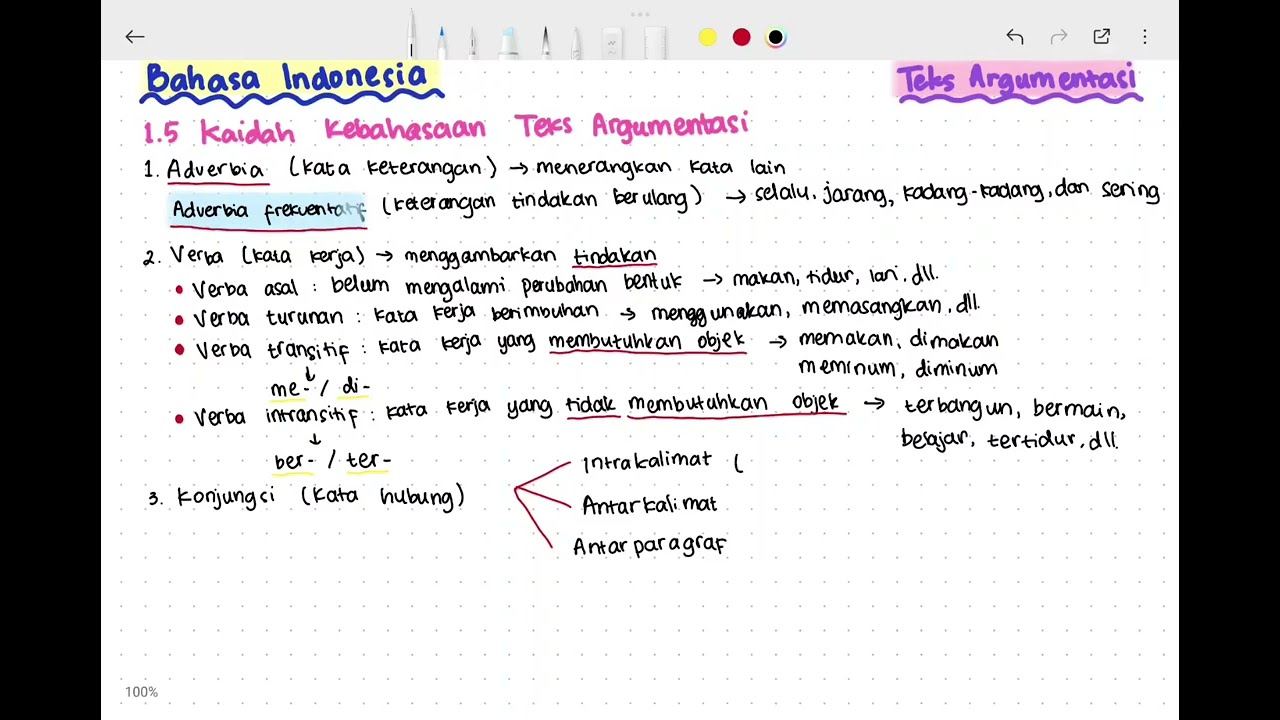 Bahasa Indonesia
Teks Argumentasi
1.5 Kaidah Kebahasaan Teks Argumentasi
1. Adverbia (kata keterangan) → menerangkan kata lain
Adverbia frekuentatif (keterangan tindakan berulang) → selalu, jarang, kadang-kadang, dan sering
2. Verba (kata kerja) → menggambarkan tindakan
• Verba asal : belum mengalami perubahan bentuk → makan, tidur, lari, dll.
• Verba turunan : kata kerja berimbuhan → menggunakan, memasangkan, dll.
• Verba transitif : kata kerja yang membutuhkan objek → memakan, dimakan
meminum, diminum
↓
me- / di-
• Verba intransitif : kata kerja yang tidak membutuhkan objek → terbangun, bermain,
belajar, tertidur, dll.
↓
ber- / ter-
3. Konjungsi (kata hubung)
Intrakalimat (
Antarkalimat
Antarparagraf
100%